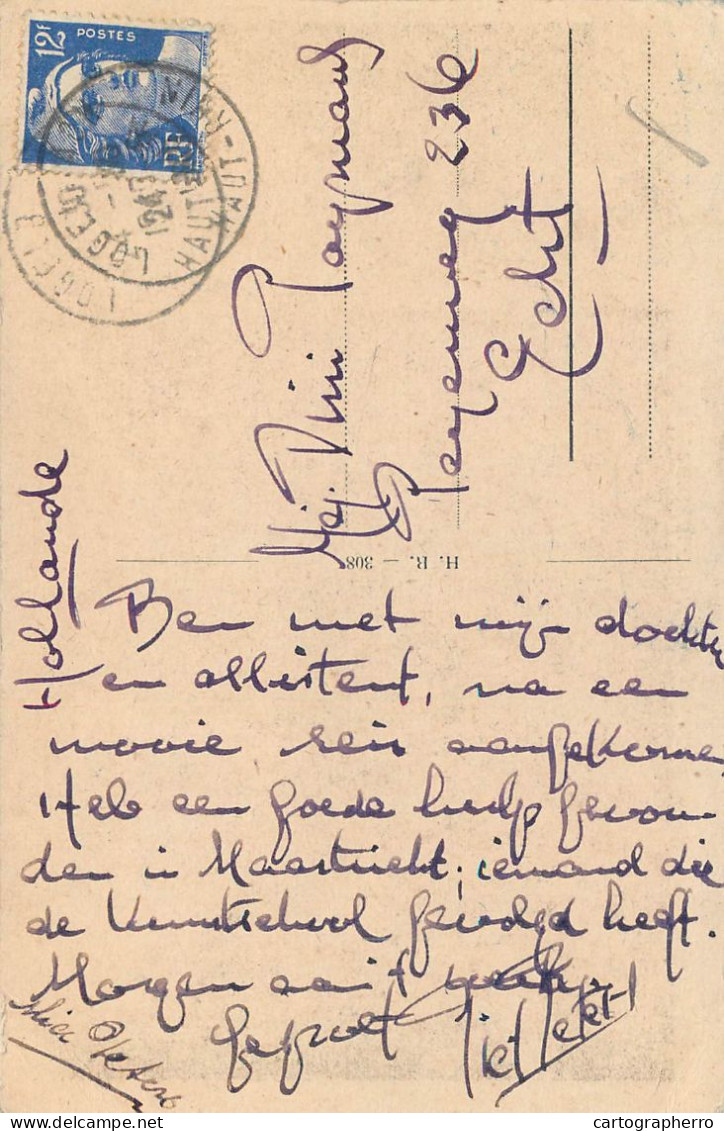 12F
POSTES
RF
LOGELHEIM
HAUT-RHIN
Mej. Mimi
236
Echt
Hollande
H. R. — 308
Ben met mijn dochter
en assistent, na een
mooie reis aangekomen
Heb een goede hulp gevon
den in Maastricht; iemand die
de Kunstschool gevolgd heeft.
Morgen aan't werk
gegroet
cartographerro